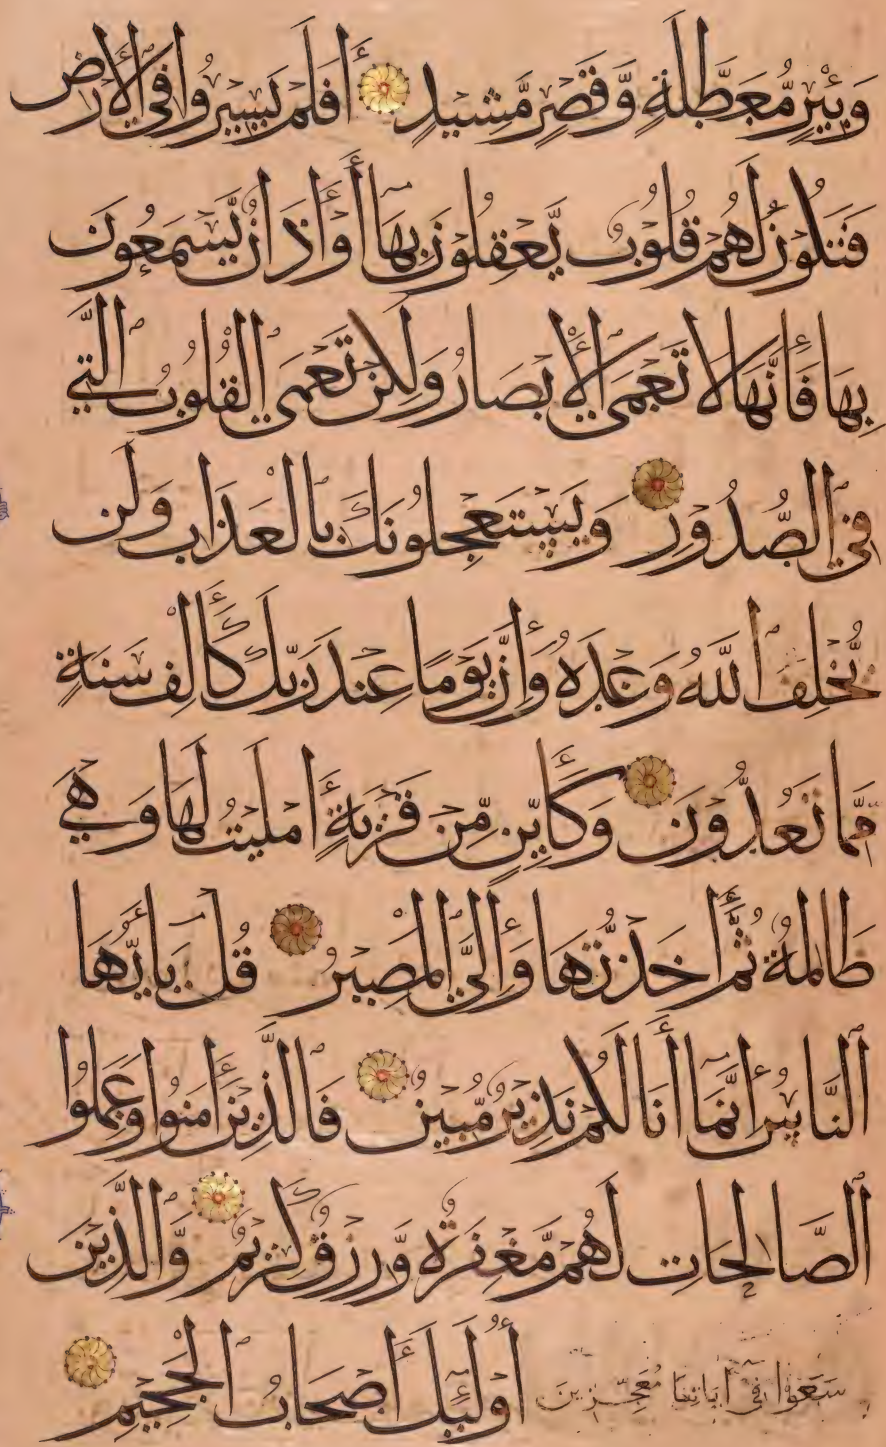 وَبِئْرٍ مُّعَطَّلَةٍ وَّقَصْرٍ مَّشِيدٍ أَفَلَمْ يَسِيرُوا فِي الْأَرْضِ
فَتَكُونَ لَهُمْ قُلُوبٌ يَّعْقِلُونَ بِهَا أَوْ أٰذَانٌ يَّسْمَعُونَ
بِهَا فَإِنَّهَا لَا تَعْمَى الْأَبْصَارُ وَلَكِنْ تَعْمَى الْقُلُوبُ الَّتِي
فِي الصُّدُورِ وَيَسْتَعْجِلُونَكَ بِالْعَذَابِ وَلَن
يُّخْلِفَ اللَّهُ وَعْدَهُ وَإِنَّ يَوْمًا عِنْدَ رَبِّكَ كَأَلْفِ سَنَةٍ
مِّمَّا تَعُدُّونَ وَكَأَيِّنْ مِّنْ قَرْيَةٍ أَمْلَيْتُ لَهَا وَهِيَ
ظَالِمَةٌ ثُمَّ أَخَذْتُهَا وَإِلَيَّ الْمَصِيرُ قُلْ يَاأَيُّهَا
النَّاسُ إِنَّمَا أَنَا لَكُمْ نَذِيرٌ مُّبِينٌ فَالَّذِينَ أٰمَنُوا وَعَمِلُوا
الصَّالِحَاتِ لَهُمْ مَّغْفِرَةٌ وَّرِزْقٌ كَرِيمٌ وَّالَّذِينَ
سَعَوْا فِي أٰيَاتِنَا مُعَجِّزِينَ أُولَئِكَ أَصْحَابُ الْجَحِيمِ